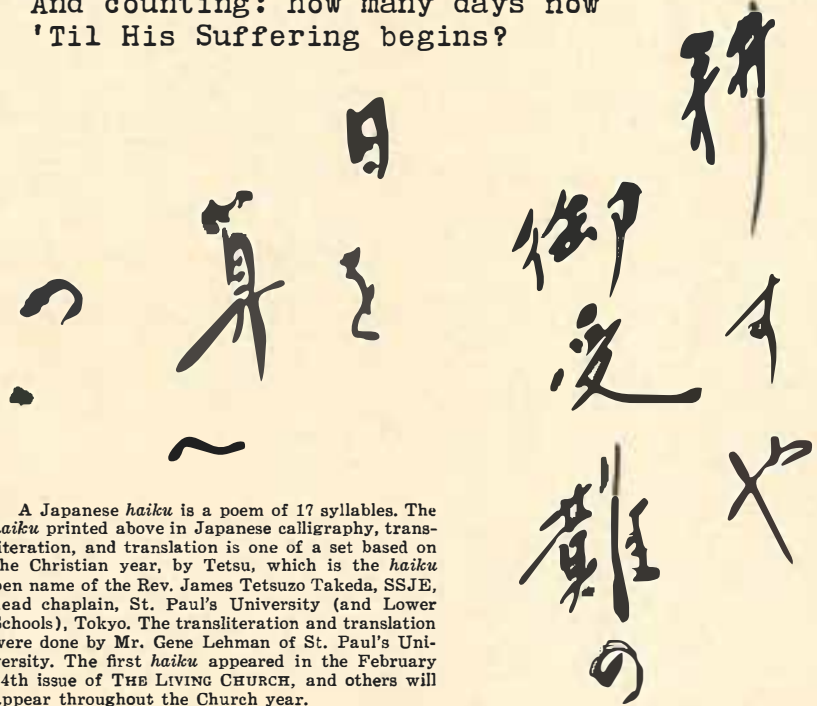 And counting: how many days now
'Til His Suffering begins?
耕すや
御受難の
日を
算へ
つゝ
A Japanese haiku is a poem of 17 syllables. The
haiku printed above in Japanese calligraphy, trans-
literation, and translation is one of a set based on
the Christian year, by Tetsu, which is the haiku
pen name of the Rev. James Tetsuzo Takeda, SSJE,
head chaplain, St. Paul's University (and Lower
Schools), Tokyo. The transliteration and translation
were done by Mr. Gene Lehman of St. Paul's Uni-
versity. The first haiku appeared in the February
4th issue of THE LIVING CHURCH, and others will
appear throughout the Church year.